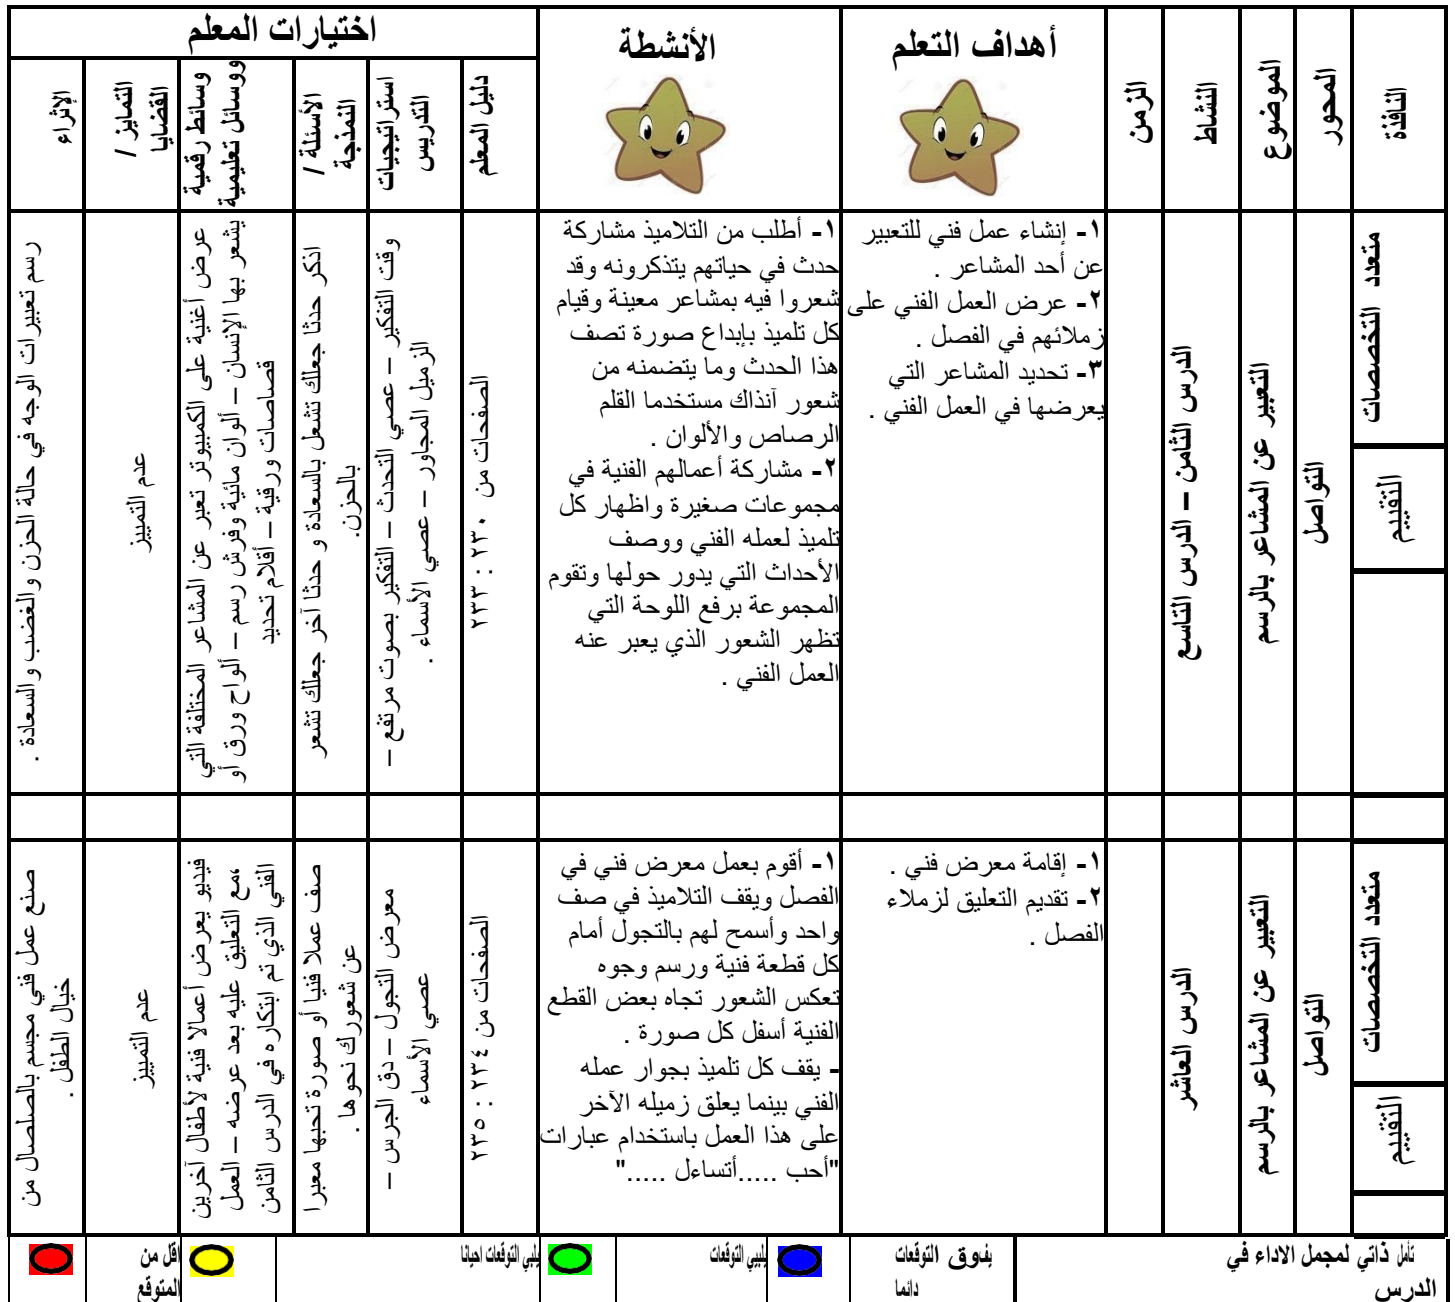 النافذة
المحور
الموضوع
النشاط
الزمن
أهداف التعلم
الأنشطة
اختيارات المعلم
دليل المعلم
استراتيجيات
التدريس
الأسئلة /
النمذجة
وسائط رقمية
ووسائل تعليمية
التمايز /
القضايا
الإثراء
متعدد التخصصات
التقييم
التواصل
التعبير عن المشاعر بالرسم
الدرس الثامن – الدرس التاسع
١- إنشاء عمل فني للتعبير
عن أحد المشاعر .
٢- عرض العمل الفني على
زملائهم في الفصل .
٣- تحديد المشاعر التي
يعرضها في العمل الفني .
١- أطلب من التلاميذ مشاركة
حدث في حياتهم يتذكرونه وقد
شعروا فيه بمشاعر معينة وقيام
كل تلميذ بإبداع صورة تصف
هذا الحدث وما يتضمنه من
شعور آنذاك مستخدما القلم
الرصاص والألوان .
٢- مشاركة أعمالهم الفنية في
مجموعات صغيرة واظهار كل
تلميذ لعمله الفني ووصف
الأحداث التي يدور حولها وتقوم
المجموعة برفع اللوحة التي
تظهر الشعور الذي يعبر عنه
العمل الفني .
الصفحات من ٢٣٠ : ٢٣٣
وقت التفكير – عصي التحدث – التفكير بصوت مرتفع –
الزميل المجاور – عصي الأسماء .
اذكر حدثا جعلك تشعل بالسعادة و حدثا آخر جعلك تشعر
بالحزن.
عرض أغنية على الكمبيوتر تعبر عن المشاعر المختلفة التي
يشعر بها الإنسان – ألوان مائية وفرش رسم – ألواح ورق أو
قصاصات ورقية – أقلام تحديد
عدم التمييز
رسم تعبيرات الوجه في حالة الحزن والغضب والسعادة .
متعدد التخصصات
التقييم
التواصل
التعبير عن المشاعر بالرسم
الدرس العاشر
١- إقامة معرض فني .
٢- تقديم التعليق لزملاء
الفصل .
١- أقوم بعمل معرض فني في
الفصل ويقف التلاميذ في صف
واحد وأسمح لهم بالتجول أمام
كل قطعة فنية ورسم وجوه
تعكس الشعور تجاه بعض القطع
الفنية أسفل كل صورة .
- يقف كل تلميذ بجوار عمله
الفني بينما يعلق زميله الآخر
على هذا العمل باستخدام عبارات
"أحب .....أتساءل ....."
الصفحات من ٢٣٤ : ٢٣٥
معرض التجول – دق الجرس –
عصي الأسماء
صف عملا فنيا أو صورة تحبها معبرا
عن شعورك نحوها .
فيديو يعرض أعمالا فنية لأطفال آخرين
،مع التعليق عليه بعد عرضه – العمل
الفني الذي تم ابتكاره في الدرس الثامن
عدم التمييز
صنع عمل فني مجسم بالصلصال من
خيال الطفل .
تأمل ذاتي لمجمل الاداء في
الدرس
يفاوق التوقعات
دائما
يلبي التوقعات
يلبي التوقعات احيانا
اقل من
المتوقع